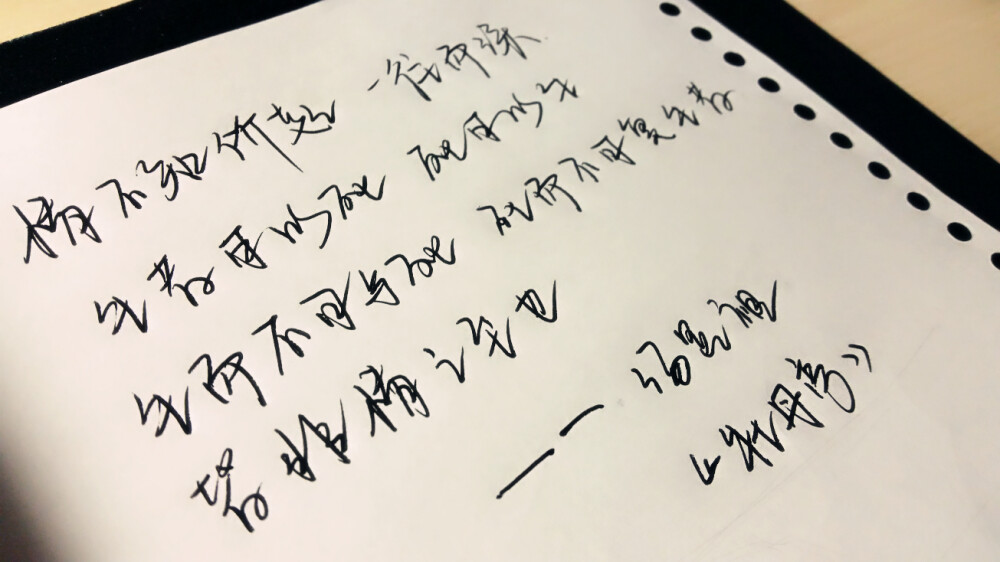 情不知所起 一往而深
生者可以死 死可以生
生而不可与死 死而不可复生者
皆非情之至也
——汤显祖
《牡丹亭》